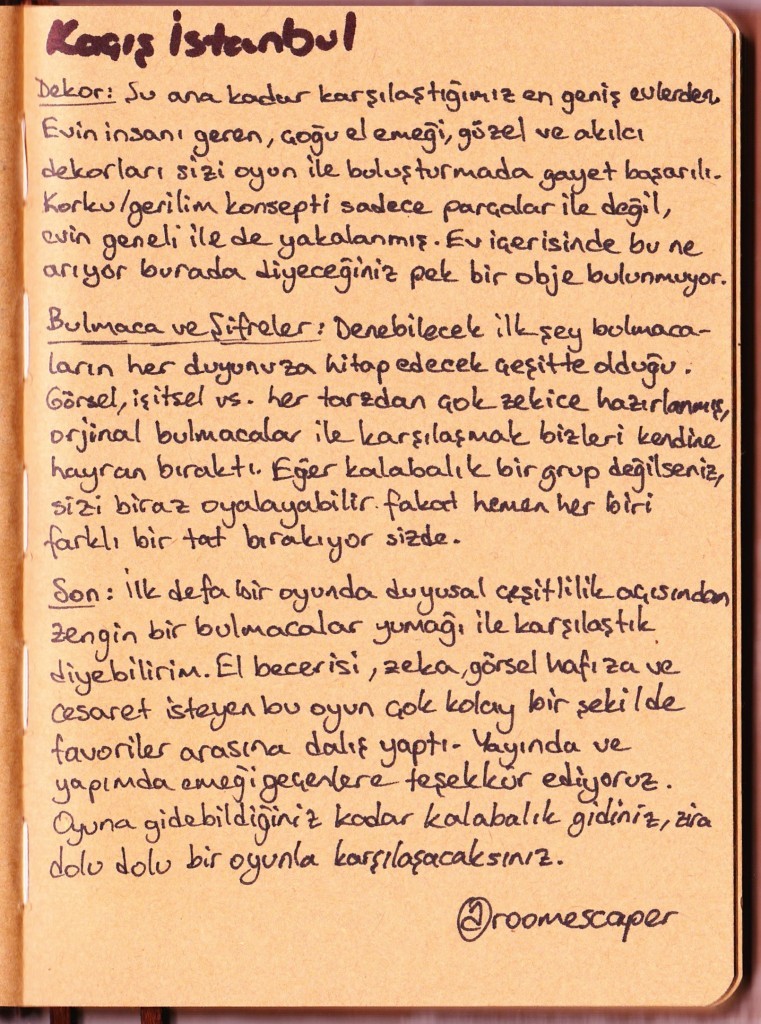 Kaçış İstanbul
Dekor: Şu ana kadar karşılaştığımız en geniş evlerden.
Evin insanı geren, çoğu el emeği, güzel ve akılcı
dekorları sizi oyun ile buluşturmada gayet başarılı.
Korku/gerilim konsepti sadece parçalar ile değil,
evin geneli ile de yakalanmış. Ev içerisinde bu ne
arıyor burada diyeceğiniz pek bir obje bulunmuyor.
Bulmaca ve Şifreler: Denebilecek ilk şey bulmaca-
ların her duyunuza hitap edecek çeşitte olduğu.
Görsel, işitsel vs. her tarzdan çok zekice hazırlanmış,
orjinal bulmacalar ile karşılaşmak bizleri kendine
hayran bıraktı. Eğer kalabalık bir grup değilseniz,
sizi biraz oyalayabilir fakat hemen her biri
farklı bir tat bırakıyor sizde.
Son: İlk defa bir oyunda duyusal çeşitlilik açısından
zengin bir bulmacalar yumağı ile karşılaştık
diyebilirim. El becerisi, zeka, görsel hafıza ve
cesaret isteyen bu oyun çok kolay bir şekilde
favoriler arasına dalış yaptı. Yayında ve
yapımda emeği geçenlere teşekkür ediyoruz.
Oyuna gidebildiğiniz kadar kalabalık gidiniz, zira
dolu dolu bir oyunla karşılaşacaksınız.
@roomescaper